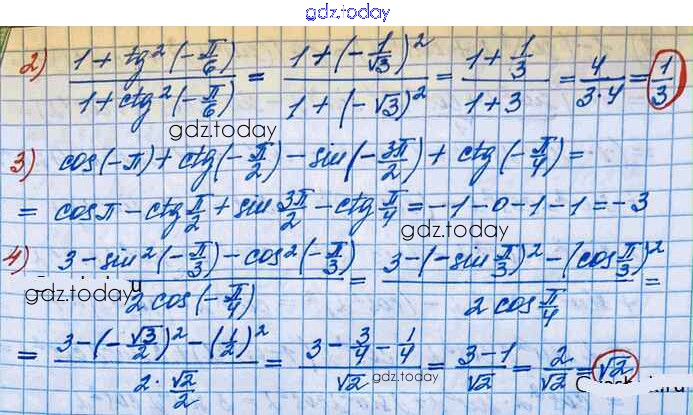 gdz.today
2) (1 + tg²(-π/6))/(1 + ctg²(-π/6)) = (1 + (-1/√3)²)/(1 + (-√3)²) = (1 + 1/3)/(1 + 3) = 4/(3·4) = 1/3
gdz.today
3) cos(-π) + ctg(-π/2) - sin(-3π/2) + ctg(-π/4) =
= cosπ - ctg π/2 + sin 3π/2 - ctg π/4 = -1 - 0 - 1 - 1 = -3
gdz.today
4) (3 - sin²(-π/3) - cos²(-π/3))/(2cos(-π/4)) = (3 - (-sin π/3)² - (cos π/3)²)/(2cos π/4) =
gdz.today
= (3 - (-√3/2)² - (1/2)²)/(2·√2/2) = (3 - 3/4 - 1/4)/√2 = (3 - 1)/√2 = 2/√2 = √2
gdz.today